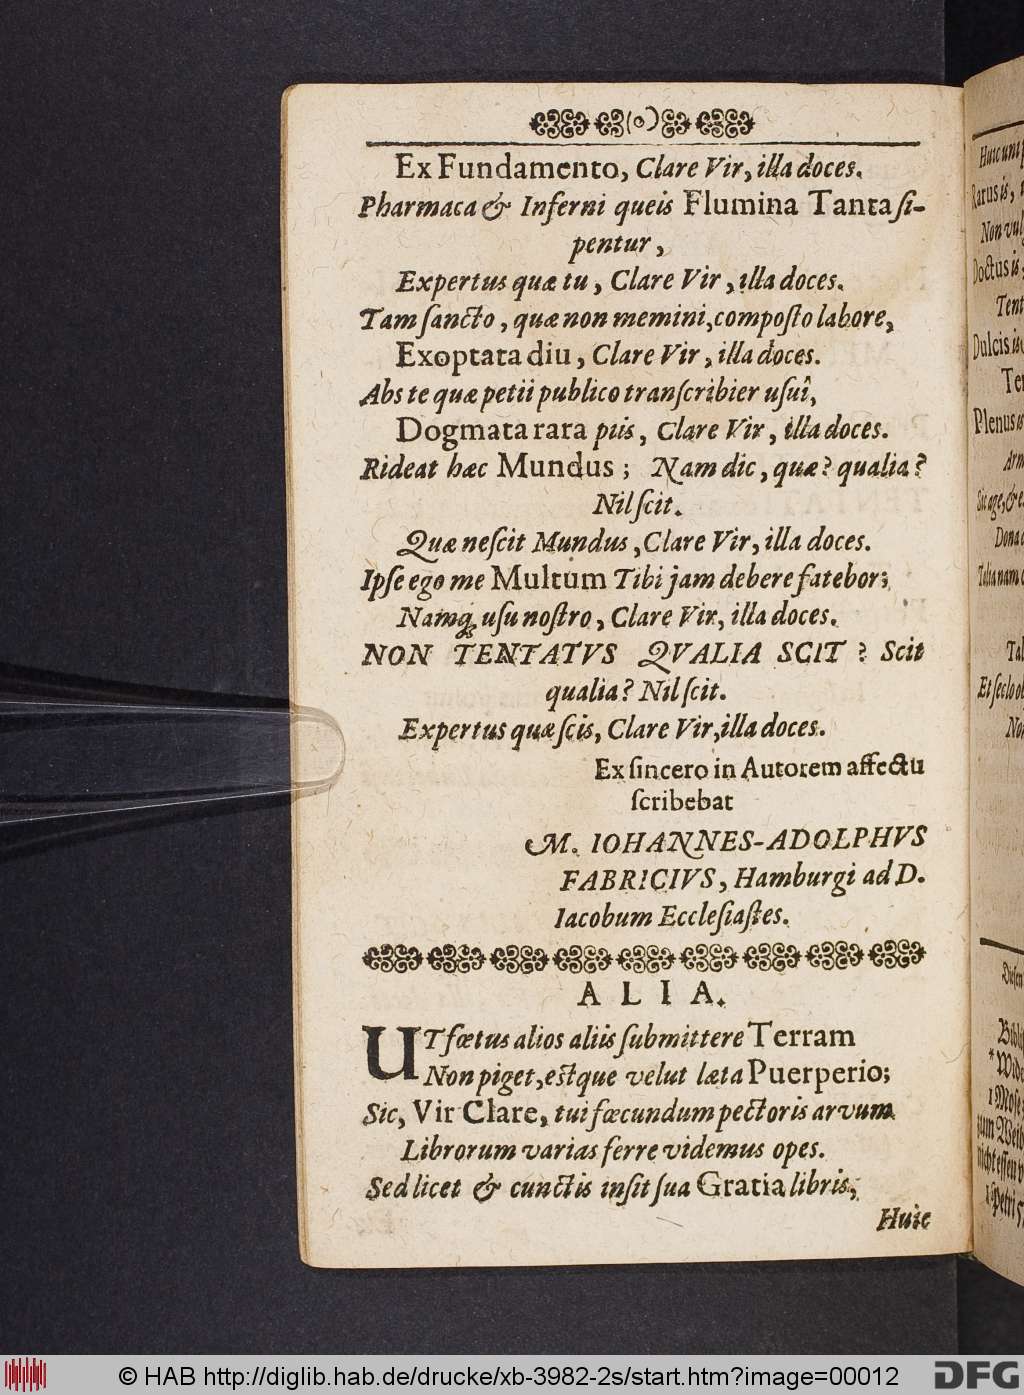 Ex Fundamento, Clare Vir, illa doces.
Pharmaca & Inferni queis Flumina Tanta si-
pentur,
Expertus quæ tu, Clare Vir, illa doces.
Tam sancto, quæ non memini, composto labore,
Exoptata diu, Clare Vir, illa doces.
Abs te quæ petii publico transcribier usui,
Dogmata rara piis, Clare Vir, illa doces.
Rideat hæc Mundus; Nam dic, quæ? qualia?
Nil scit.
Quæ nescit Mundus, Clare Vir, illa doces.
Ipse ego me Multum Tibi jam debere fatebor;
Namq; usu nostro, Clare Vir, illa doces.
NON TENTATVS QVALIA SCIT? Scit
qualia? Nil scit.
Expertus quæ scis, Clare Vir, illa doces.
Ex sincero in Autorem affectu
scribebat
M. IOHANNES-ADOLPHVS
FABRICIVS, Hamburgi ad D.
Iacobum Ecclesiastes.
ALIA.
UT fœtus alios aliis submittere Terram
Non piget, estque velut læta Puerperio;
Sic, Vir Clare, tui fœcundum pectoris arvum
Librorum varias ferre videmus opes.
Sed licet & cunctis insit sua Gratia libris,
Huic
Huic uni
Rarus is,
Non vul
Doctus is,
Tent
Dulcis is
Ter
Plenus is
Arm
Sic age, & e
Dona
Talia nam
Tal
Et seclo
Non
Diesen
Bibl
1 Mose
zum Weib
nicht essen
1 Petri 5
© HAB http://diglib.hab.de/drucke/xb-3982-2s/start.htm?image=00012
DFG